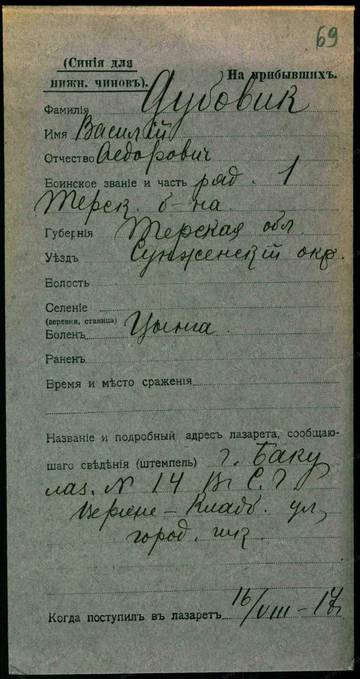 69
(Синія для
нижн. чиновъ).
На прибывшихъ.
Фамилія Дубовик
Имя Василій
Отчество Ѳедорович
Воинское званіе и часть ряд. 1
Терск. б-на
Губернія Терская обл.
Уѣздъ Сунженскій окр.
Волость
Селеніе
(деревня, станица)
Боленъ Цынга
Раненъ
Время и мѣсто сраженія
Названіе и подробный адресъ лазарета, сообщаю-
щаго свѣдѣнія (штемпель) г. Баку
лаз. № 14 В. С. Г.
Верхне-Кладб. ул,
город. шк.
Когда поступилъ въ лазаретъ 16/VIII-17